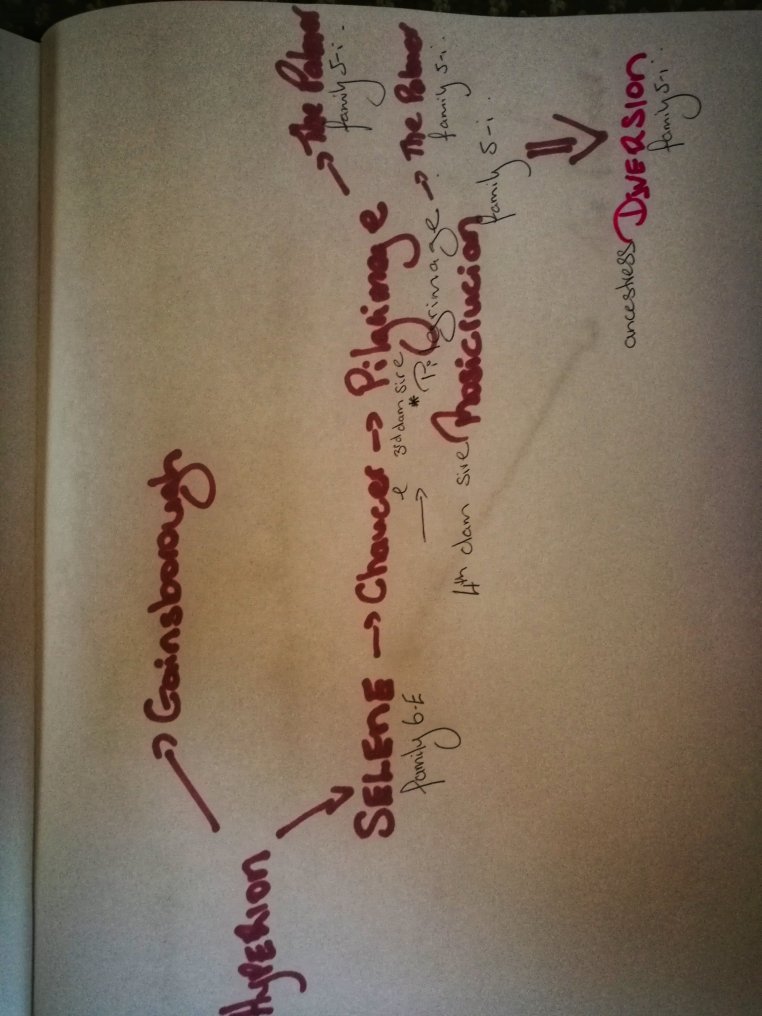 → Gainsborough
HYPERION
→ The Palmer
family 5-i..
SELENE → Chaucer → Pilgrimage
family 6-E
e 3rd dam sire
→ * Pilgrimage → The Palmer
family 5-i..
4th dam sire Rosicrucian
family 5-i..
⇒
ancestress DIVERSION
family 5-i..